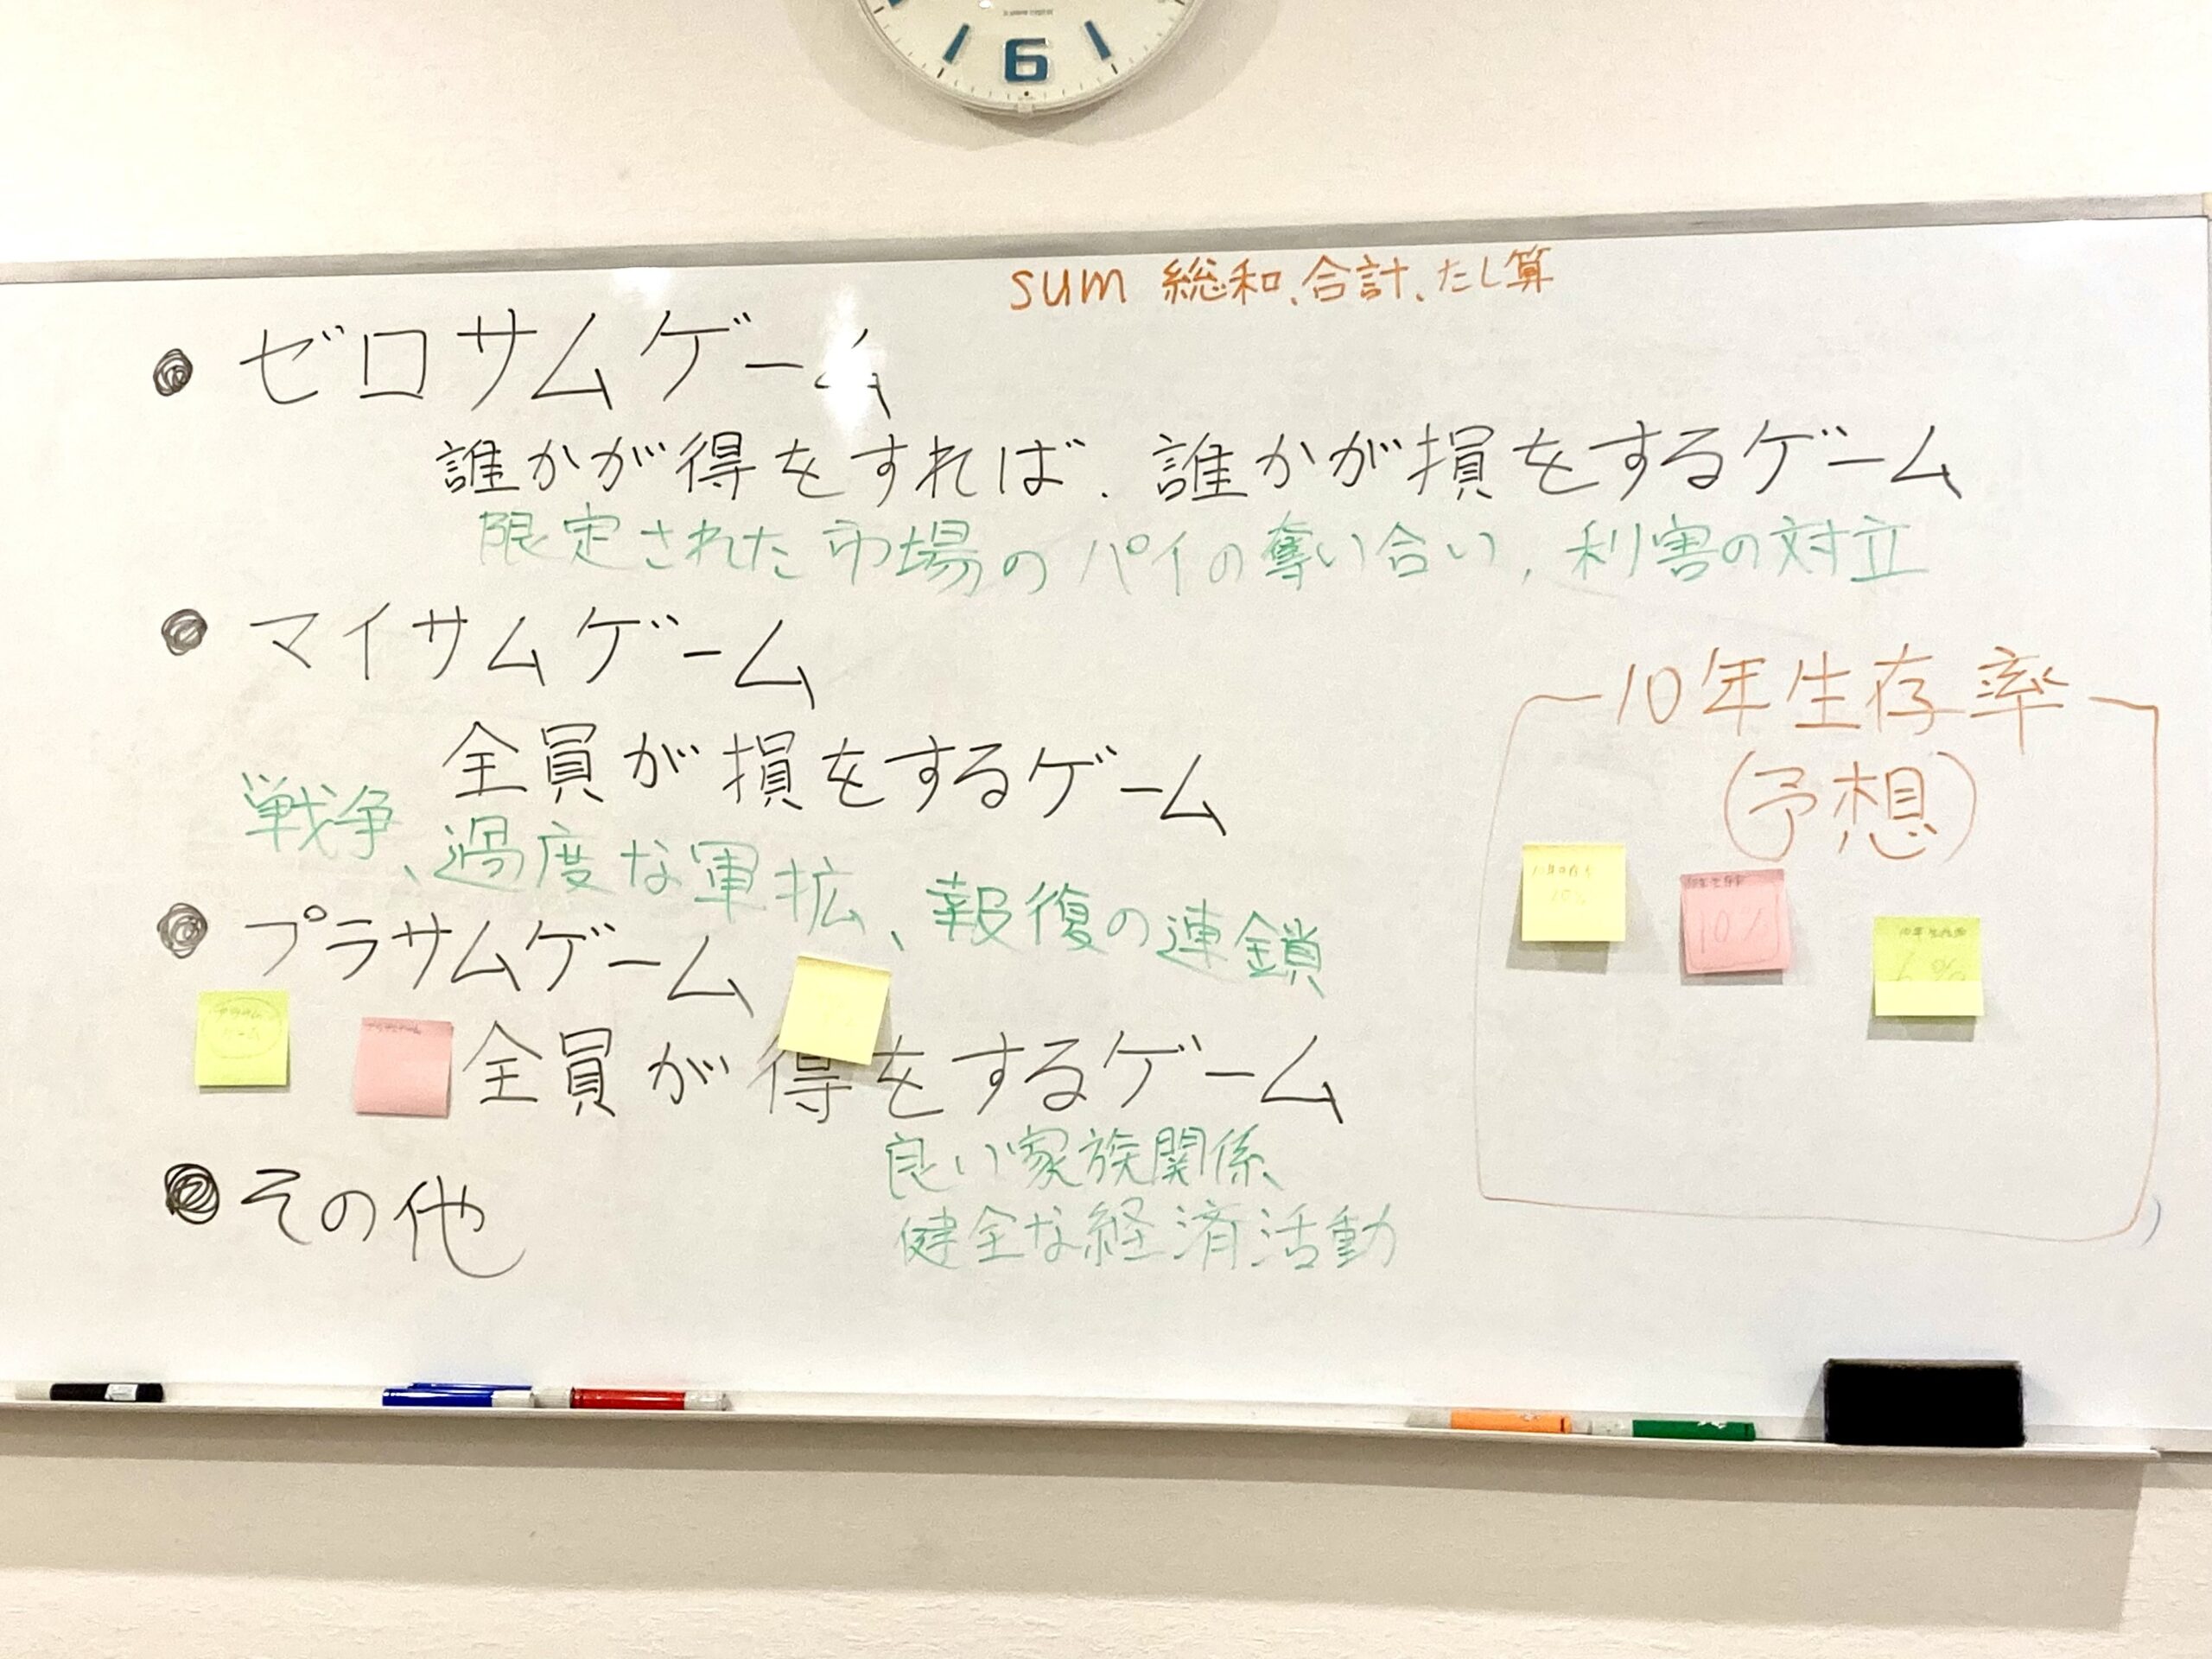 6
sum 総和、合計、たし算
● ゼロサムゲーム
誰かが得をすれば、誰かが損をするゲーム
限定された市場のパイの奪い合い、利害の対立
● マイサムゲーム
全員が損をするゲーム
戦争、過度な軍拡、報復の連鎖
● プラサムゲーム
全員が得をするゲーム
良い家族関係、
健全な経済活動
● その他
10年生存率
(予想)
10年生存率
10%
10年生存率